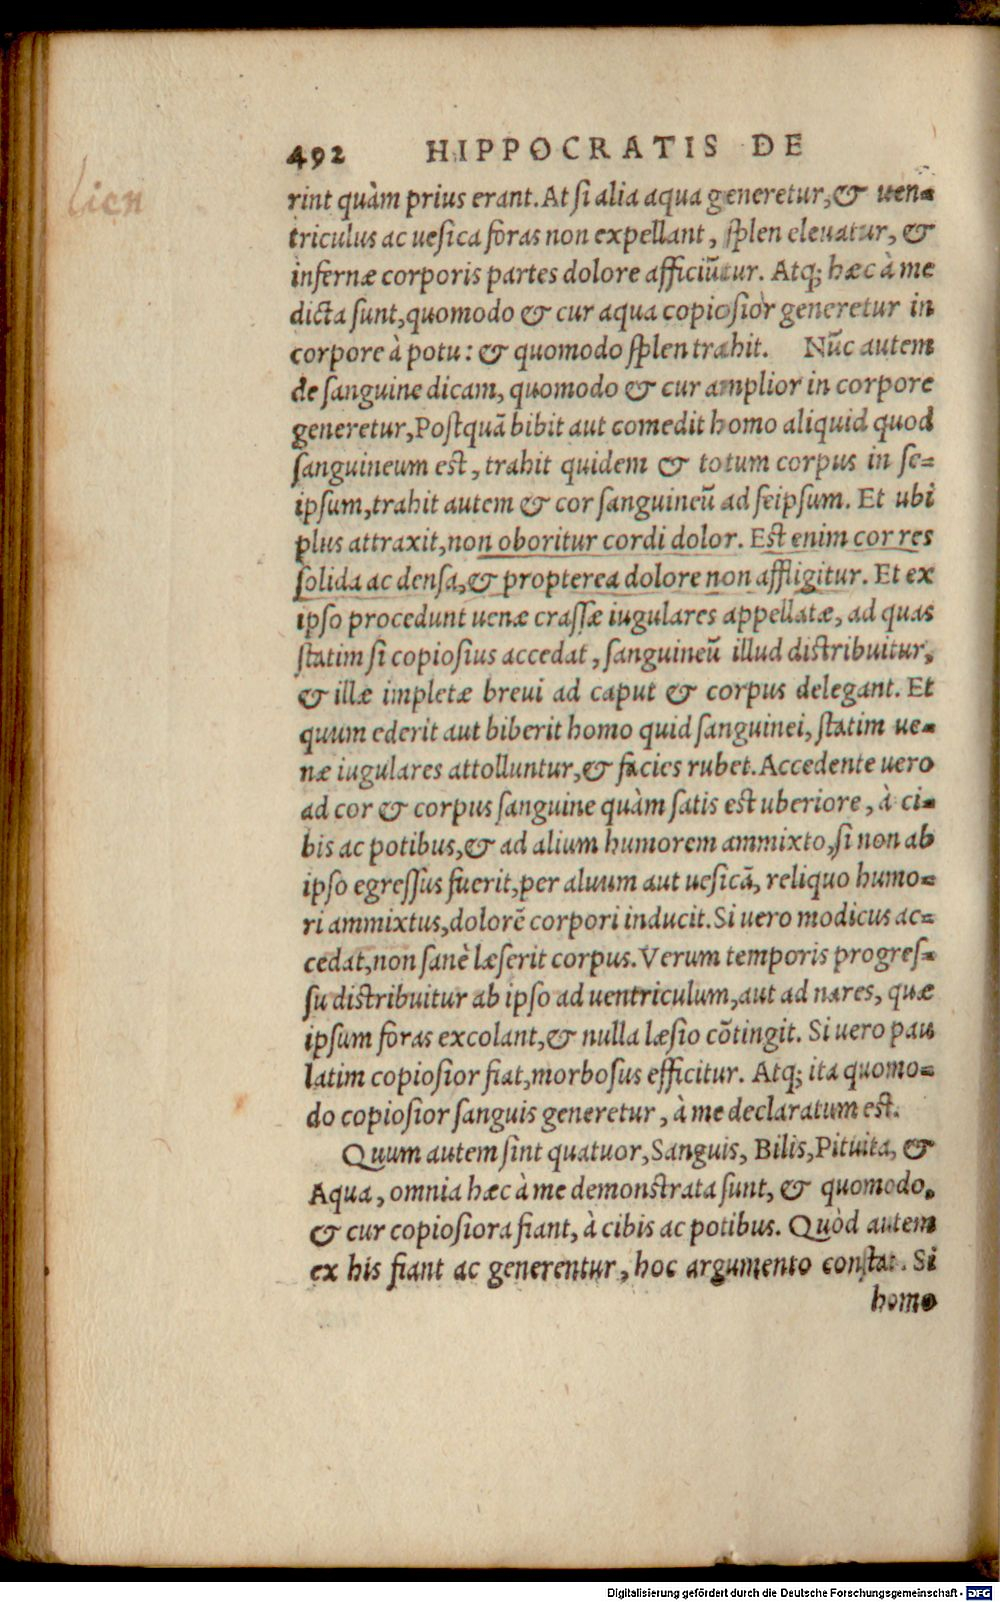 492 HIPPOCRATIS DE
lien
rint quàm prius erant. At si alia aqua generetur, & uen-
triculus ac uesica foras non expellant, splen eleuatur, &
infernæ corporis partes dolore afficiũtur. Atq; hæc à me
dicta sunt, quomodo & cur aqua copiosior generetur in
corpore à potu: & quomodo splen trahit. Nũc autem
de sanguine dicam, quomodo & cur amplior in corpore
generetur, Postquã bibit aut comedit homo aliquid quod
sanguineum est, trahit quidem & totum corpus in se-
ipsum, trahit autem & cor sanguineũ ad seipsum. Et ubi
plus attraxit, non oboritur cordi dolor. Est enim cor res
solida ac densa, & propterea dolore non affligitur. Et ex
ipso procedunt uenæ crassæ iugulares appellatæ, ad quas
statim si copiosius accedat, sanguineũ illud distribuitur,
& illæ impletæ breui ad caput & corpus delegant. Et
quum ederit aut biberit homo quid sanguinei, statim ue-
næ iugulares attolluntur, & facies rubet. Accedente uero
ad cor & corpus sanguine quàm satis est uberiore, à ci-
bis ac potibus, & ad alium humorem ammixto, si non ab
ipso egressus fuerit, per aluum aut uesicã, reliquo humo-
ri ammixtus, dolorẽ corpori inducit. Si uero modicus ac-
cedat, non sanè læserit corpus. Verum temporis progres-
su distribuitur ab ipso ad uentriculum, aut ad nares, quæ
ipsum foras excolant, & nulla læsio cõtingit. Si uero pau
latim copiosior fiat, morbosus efficitur. Atq; ita quomo-
do copiosior sanguis generetur, à me declaratum est.
Quum autem sint quatuor, Sanguis, Bilis, Pituita, &
Aqua, omnia hæc à me demonstrata sunt, & quomodo,
& cur copiosiora fiant, à cibis ac potibus. Quòd autem
ex his fiant ac generentur, hoc argumento constat. Si
homo
Digitalisierung gefördert durch die Deutsche Forschungsgemeinschaft - DFG